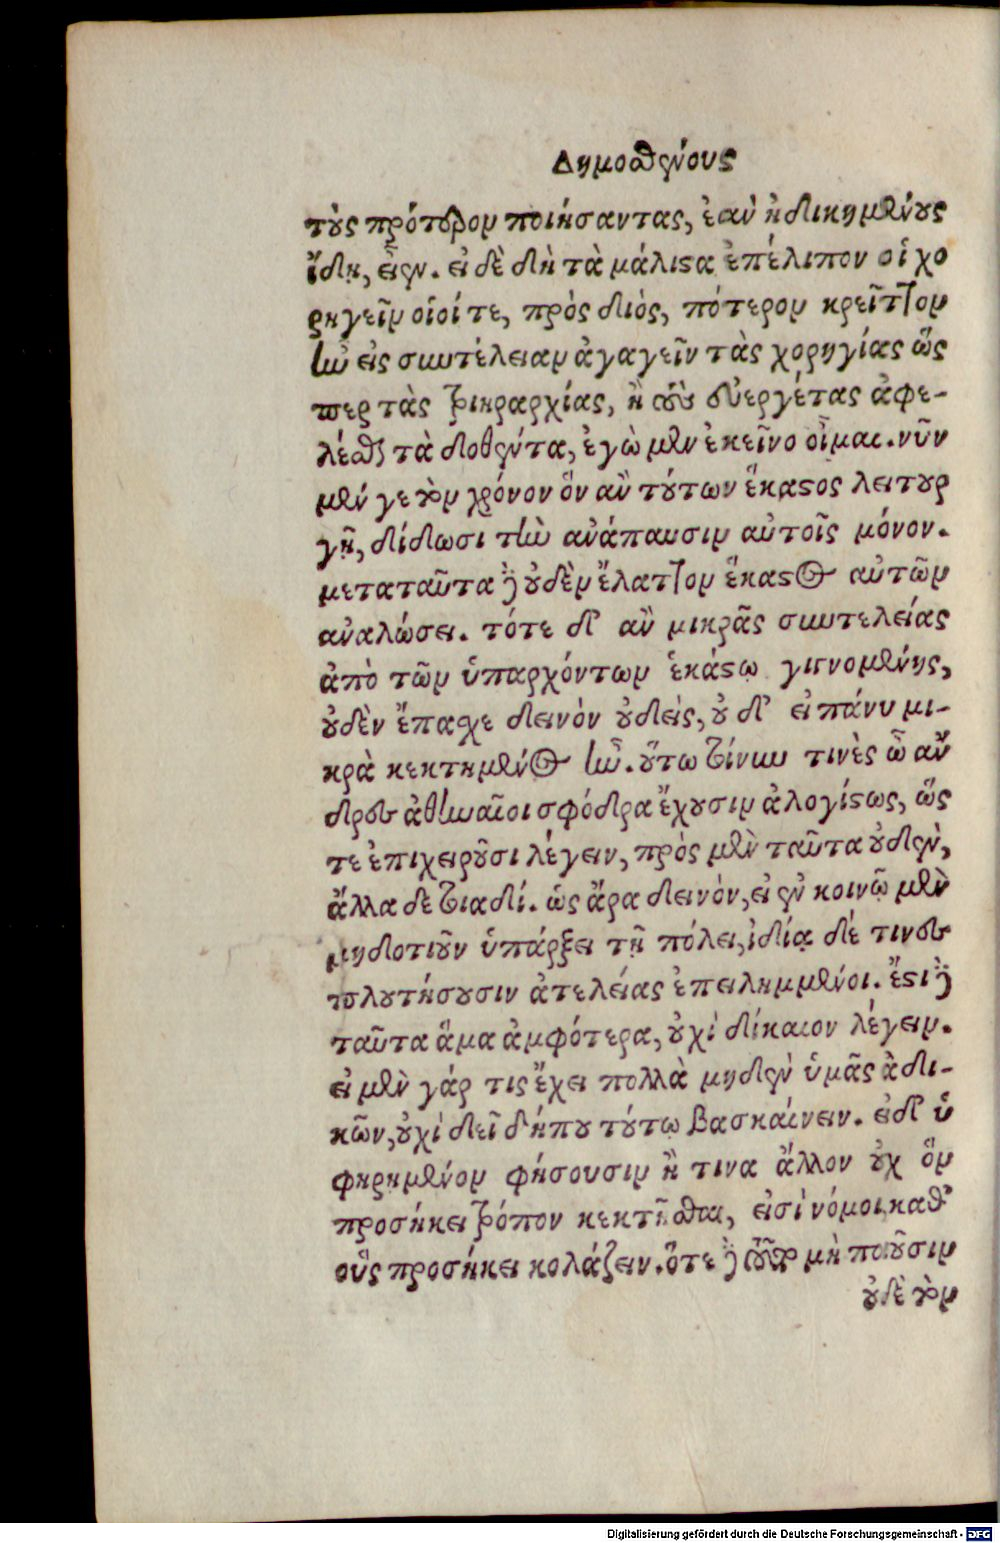 Δημοσθένους
τοὺς πρότερον ποιήσαντας, ἐὰν ἠδικημένους
ἴδῃ, ἐᾷν. εἰ δὲ δὴ τὰ μάλιστα ἐπέλιπον οἱ χο
ρηγεῖν οἷοί τε, πρὸς διὸς, πότερον κρεῖττον
ἦν εἰς συντέλειαν ἀγαγεῖν τὰς χορηγίας ὥς
περ τὰς τριηραρχίας, ἢ τοὺς εὐεργέτας ἀφε-
λέσθαι τὰ δοθέντα, ἐγὼ μὲν ἐκεῖνο οἶμαι. νῦν
μέν γε τὸν χρόνον ὃν ἂν τούτων ἕκαστος λειτουρ
γῇ, δίδωσι τὴν ἀνάπαυσιν αὐτοῖς μόνον.
μεταταῦτα δ' οὐδὲν ἔλαττον ἕκαστος αὐτῶν
ἀναλώσει. τότε δ' ἂν μικρᾶς συντελείας
ἀπὸ τῶν ὑπαρχόντων ἑκάστῳ γιγνομένης,
οὐδὲν ἔπασχε δεινὸν οὐδεὶς, οὐ δ' εἰ πάνυ μι-
κρὰ κεκτημένος ἦν. οὕτω τοίνυν τινὲς ὦ ἄν
δρες ἀθηναῖοι σφόδρα ἔχουσιν ἀλογίστως, ὥς
τε ἐπιχειροῦσι λέγειν, πρὸς μὲν ταῦτα οὐδὲν,
ἄλλα δε τοιαδί. ὡς ἄρα δεινὸν, εἰ ἐν κοινῷ μὲν
μηδοτιοῦν ὑπάρξει τῇ πόλει, ἰδίᾳ δέ τινες
πλουτήσουσιν ἀτελείας ἐπειλημμένοι. ἔστι δ'
ταῦτα ἅμα ἀμφότερα, οὐχὶ δίκαιον λέγειν.
εἰ μὲν γάρ τις ἔχει πολλὰ μηδὲν ὑμᾶς ἀδι-
κῶν, οὐχὶ δεῖ δήπου τούτῳ βασκαίνειν. εἰ δ' ὑ
φῃρημένον φήσουσιν ἤ τινα ἄλλον οὐχ ὃν
προσήκει τρόπον κεκτῆσθαι, εἰσὶ νόμοι καθ'
οὓς προσήκει κολάζειν. ὅτε δ' τοῦτο μὴ ποιοῦσιν
οὐδὲ τὸν
Digitalisierung gefördert durch die Deutsche Forschungsgemeinschaft - DFG